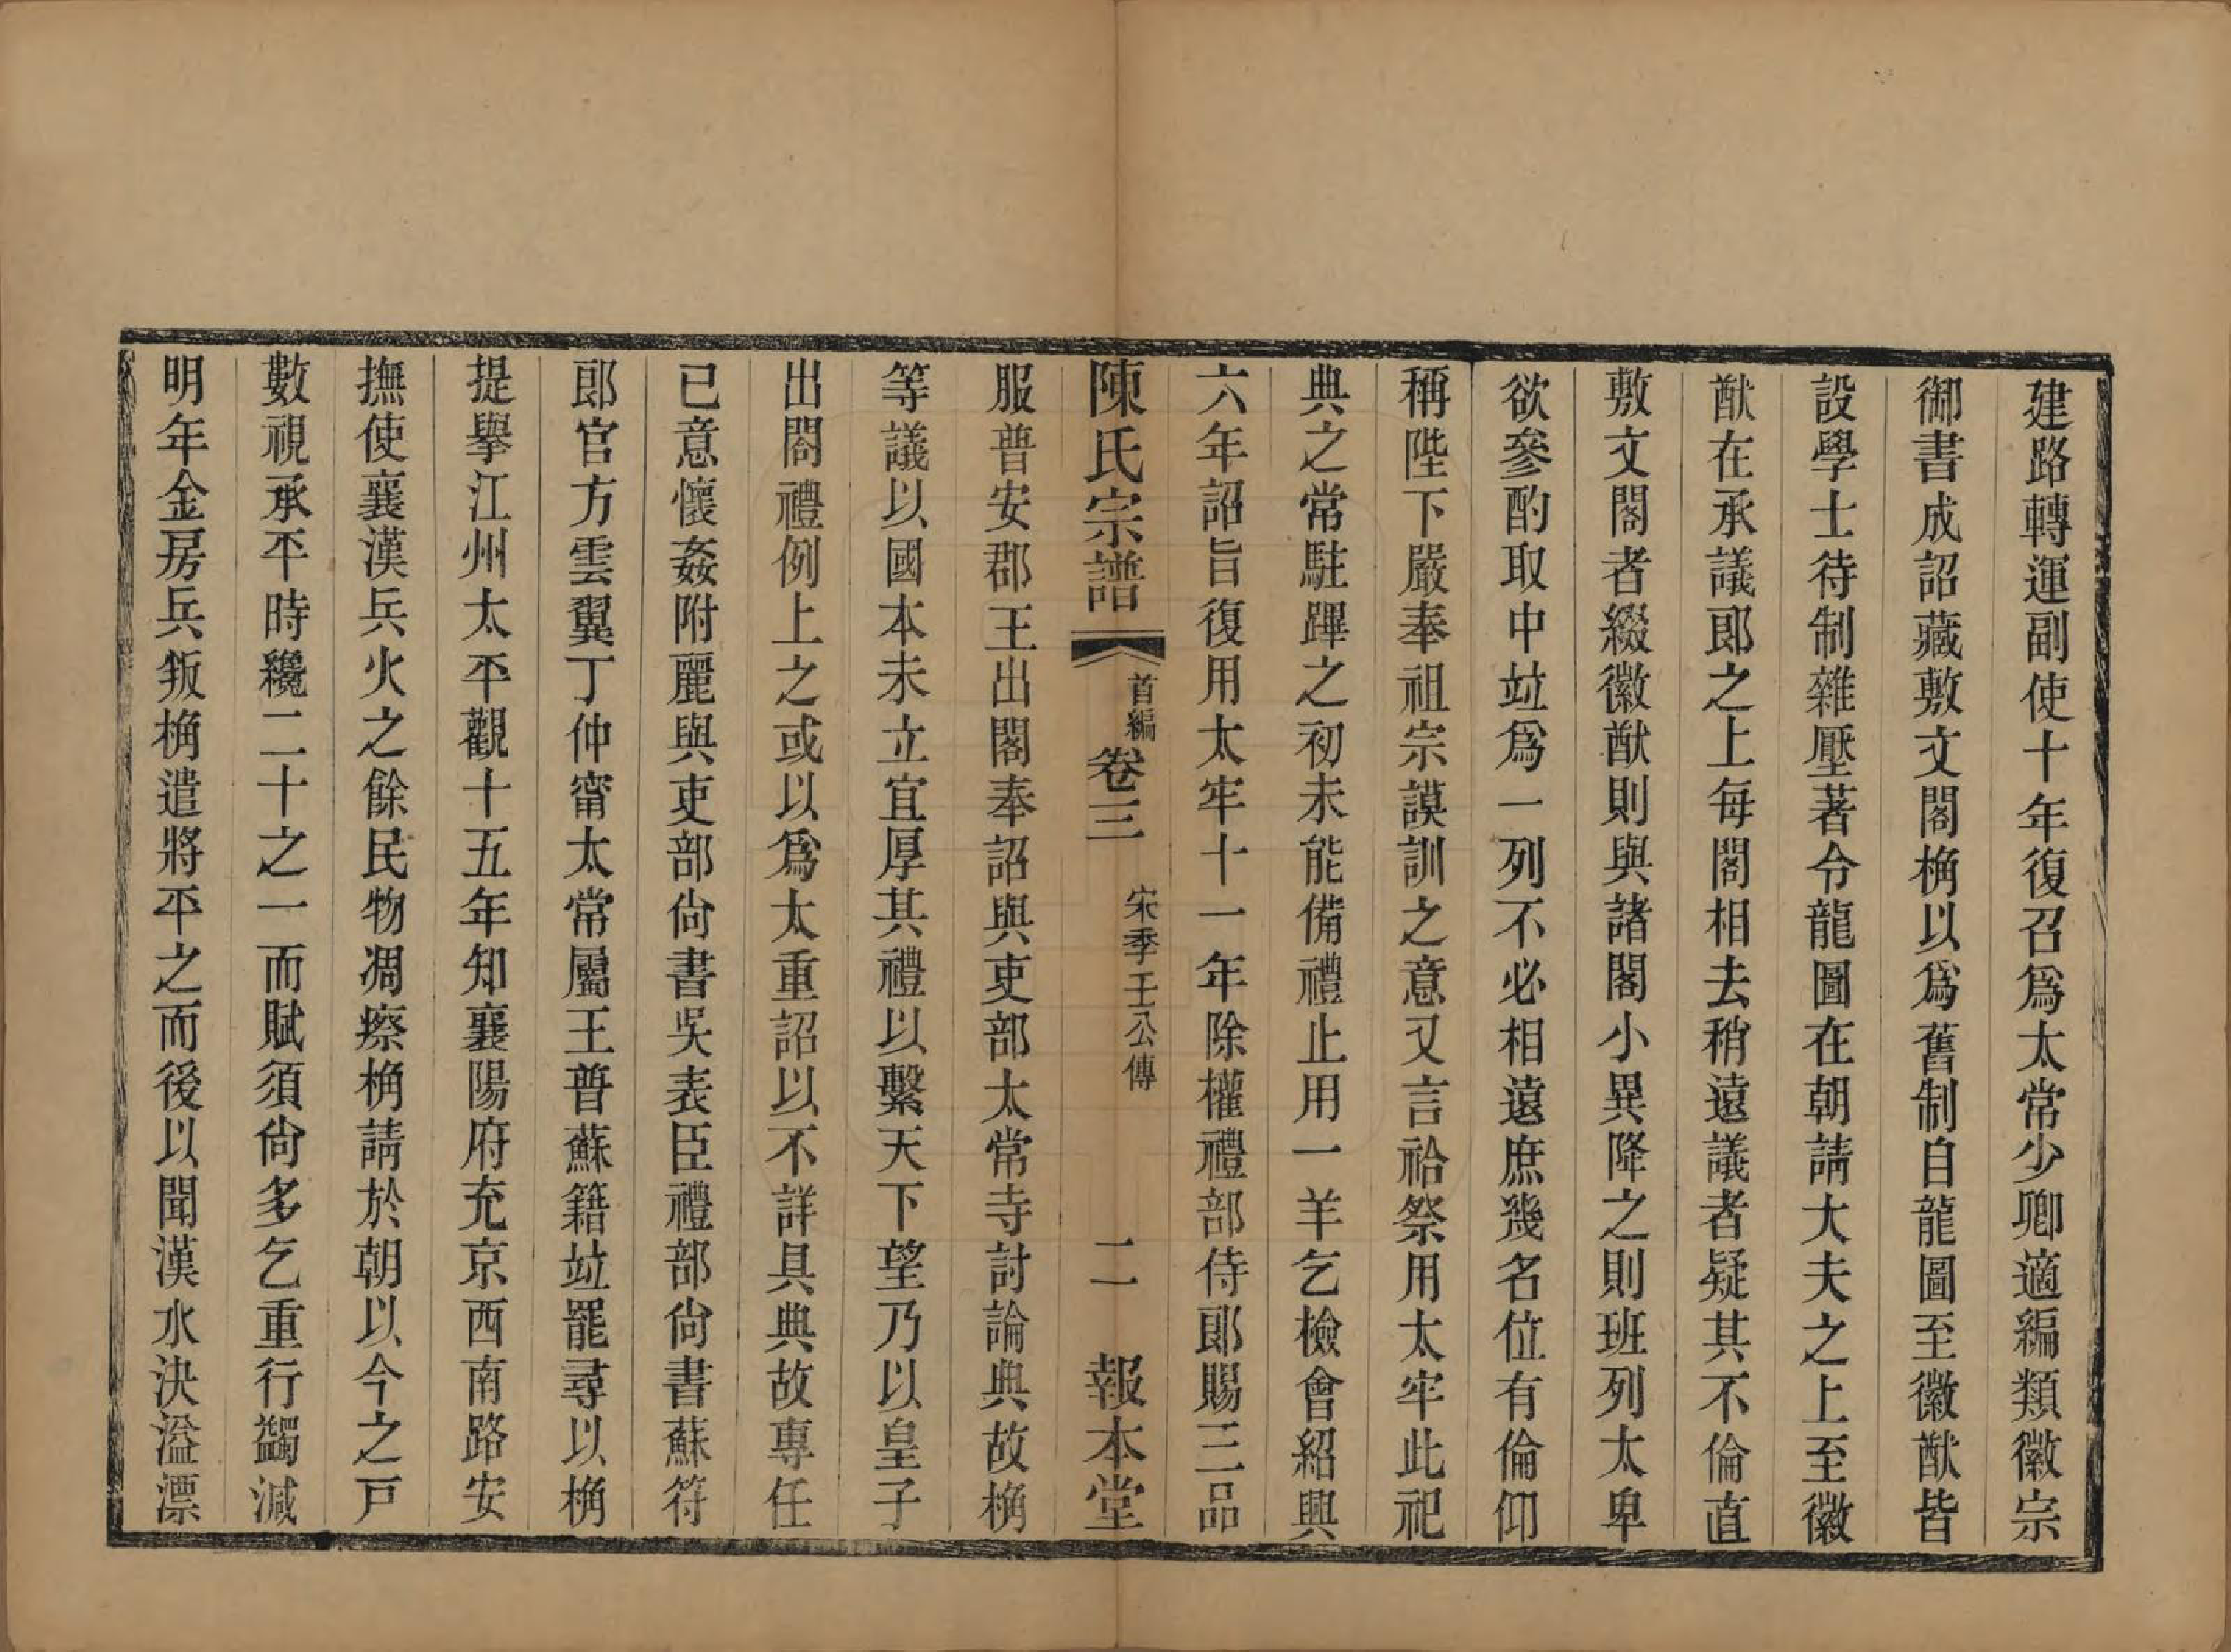 建路轉運副使十年復召爲太常少卿適編類徽宗
御書成詔藏敷文閣桷以爲舊制自龍圖至徽猷皆
設學士待制雜壓著令龍圖在朝請大夫之上至徽
猷在承議郎之上每閣相去稍遠議者疑其不倫直
敷文閣者綴徽猷則與諸閣小異降之則班列太卑
欲參酌取中竝爲一列不必相遠庶幾名位有倫仰
稱陛下嚴奉祖宗謨訓之意又言祫祭用太牢此祀
典之常駐蹕之初未能備禮止用一羊乞檢會紹興
六年詔旨復用太牢十一年除權禮部侍郎賜三品
陳氏宗譜 首編 卷三 宋季壬公傳 二 報本堂
服普安郡王出閣奉詔與吏部太常寺討論典故桷
等議以國本未立宜厚其禮以繫天下望乃以皇子
出閣禮例上之或以爲太重詔以不詳具典故專任
已意懷姦附麗與吏部尙書吳表臣禮部尙書蘇符
郎官方雲翼丁仲甯太常屬王普蘇籍竝罷尋以桷
提舉江州太平觀十五年知襄陽府充京西南路安
撫使襄漢兵火之餘民物凋瘵桷請於朝以今之戸
數視承平時纔二十之一而賦須尙多乞重行蠲減
明年金房兵叛桷遣將平之而後以聞漢水決溢漂